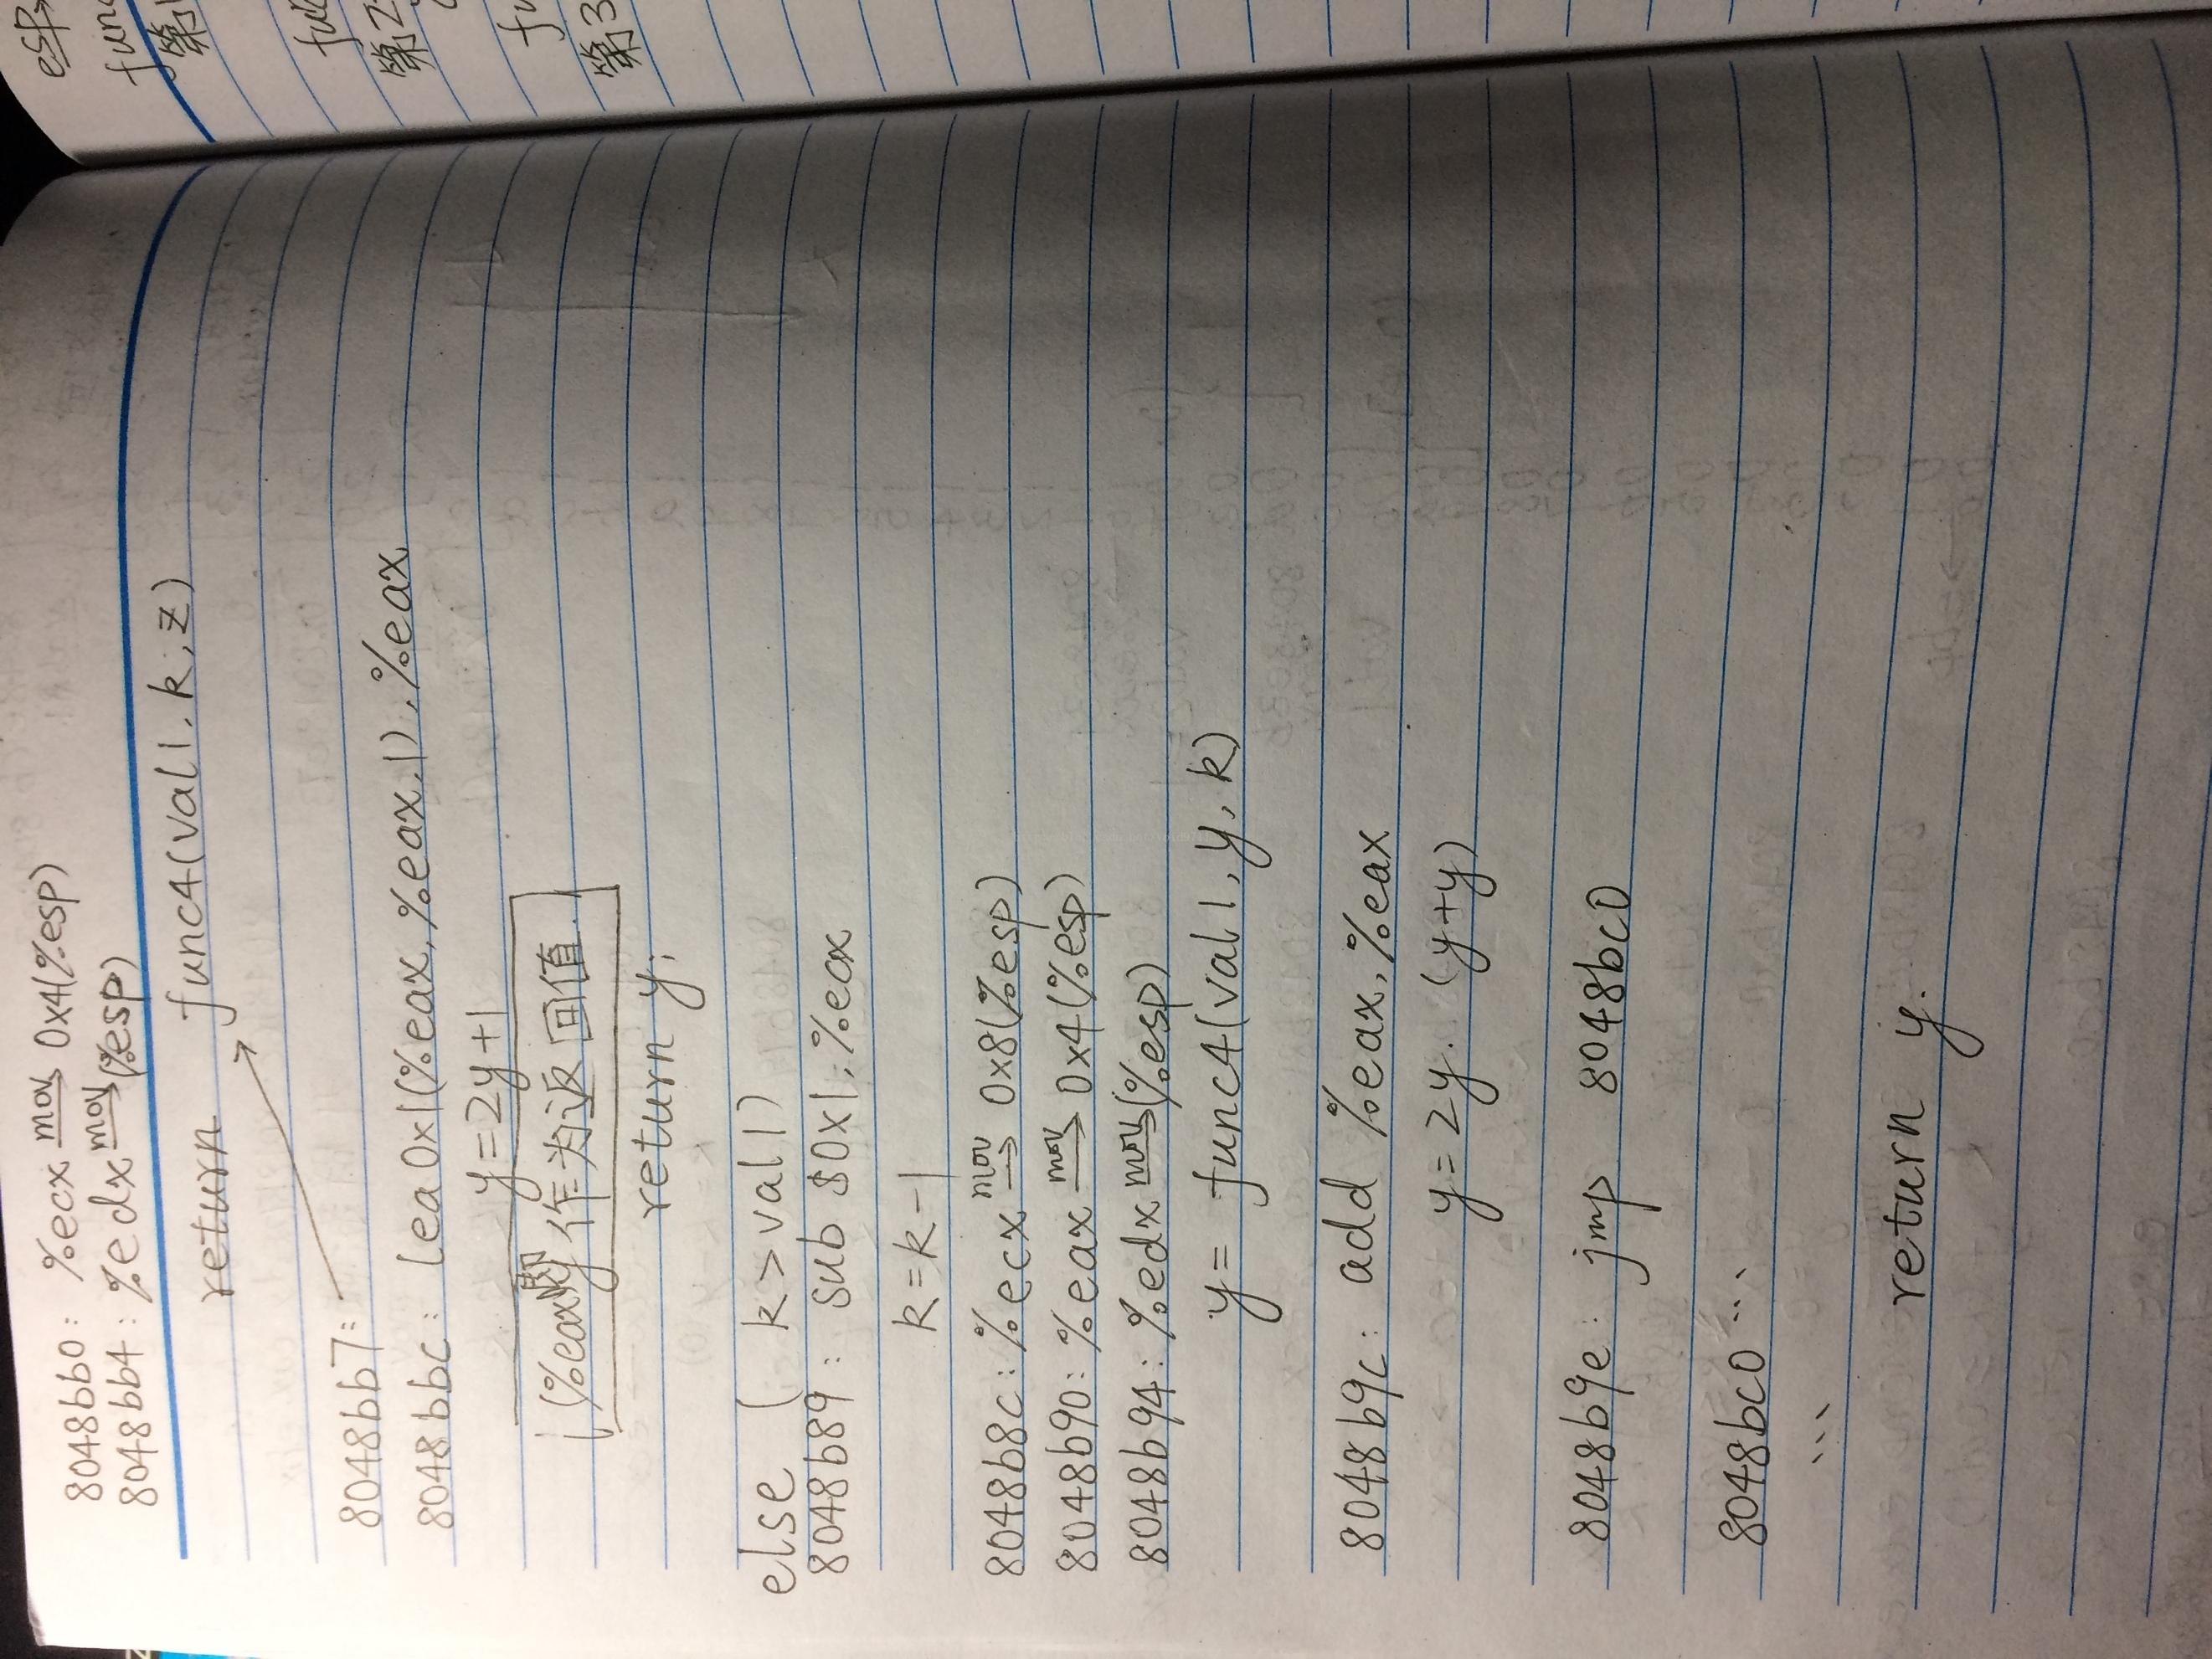 8048bb0: %ecx mov 0x4(%esp)
8048bb4: %edx mov (%esp)
return func4(val1,k,z)
8048bb7:
8048bbc: lea 0x1(%eax,%eax,1),%eax
y=2y+1
(%eax即y作为返回值.)
return y;
else ( k>val1)
8048b89: sub $0x1,%eax
k=k-1
8048b8c: %ecx mov 0x8(%esp)
8048b90: %eax mov 0x4(%esp)
8048b94: %edx mov (%esp)
y= func4(val1,y,k)
8048b9c: add %eax,%eax
y=2y. (y+y)
8048b9e: jmp 8048bc0
8048bc0 ...
...
return y.
esp
func
第1
第2
第3